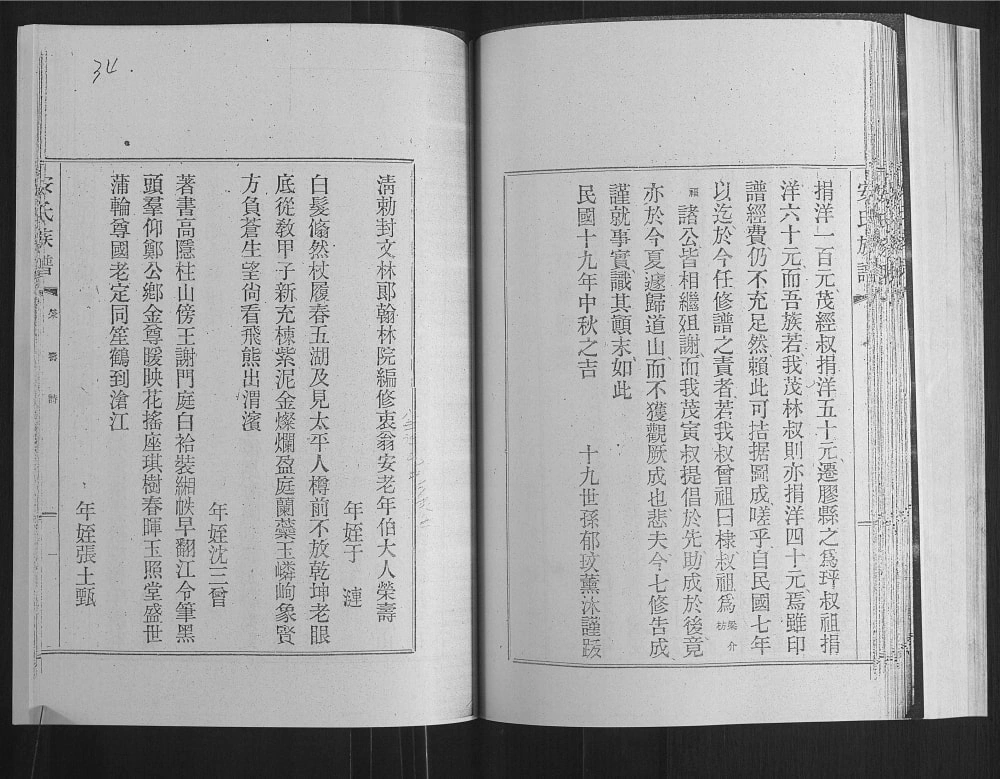 捐洋一百元茂經叔捐洋五十元遷膠縣之爲玶叔祖捐
洋六十元而吾族若我茂林叔則亦捐洋四十元焉雖印
譜經費仍不充足然賴此可拮据圖成嗟乎自民國七年
以迄於今任修譜之責者若我叔曾祖曰棣叔祖爲榘介枋
福諸公皆相繼殂謝而我茂寅叔提倡於先助成於後竟
亦於今夏遽歸道山而不獲觀厥成也悲夫今七修告成
謹就事實識其顛末如此
民國十九年中秋之吉 十九世孫郁玟薰沐謹跋
安氏族譜
34
淸勅封文林郎翰林院編修衷翁安老年伯大人榮壽
年姪于 漣
白髮翛然杖履春五湖及見太平人樽前不放乾坤老眼
底從敎甲子新充棟紫泥金燦爛盈庭蘭蘂玉嶙峋象賢
方負蒼生望尙看飛熊出渭濱
年姪沈三曾
著書高隱柱山傍王謝門庭白袷裝緗帙早翻江令筆黑
頭羣仰鄭公鄉金尊暖映花搖座琪樹春暉玉照堂盛世
蒲輪尊國老定同笙鶴到滄江
年姪張士甄
安氏族譜 榮壽詩 一